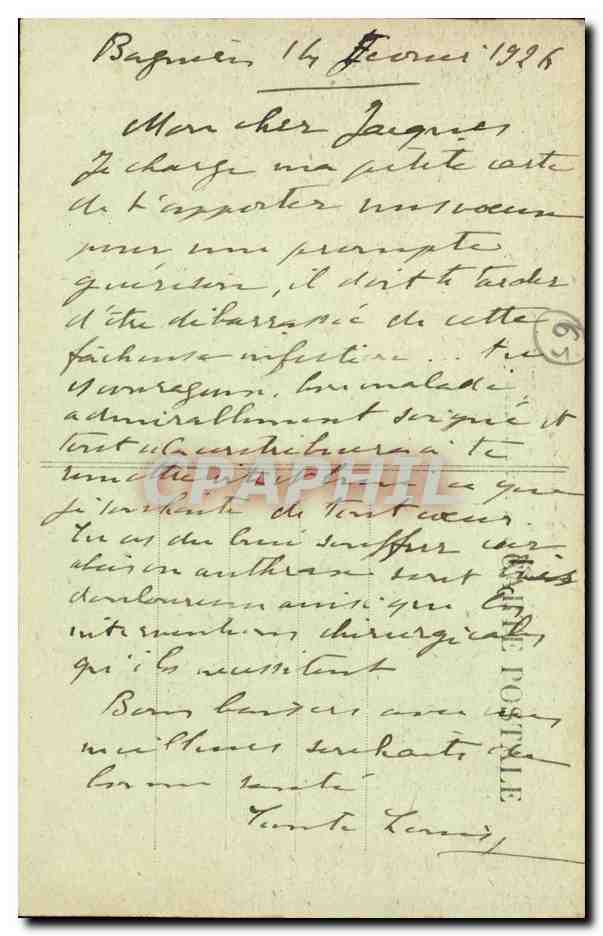 Bagnères 14 Février 1926
Mon cher Jacques
Je charge ma petite carte
de t'apporter mes vœux
pour une prompte
guérison, il doit te tarder
d'être débarrassé de cette
fâcheuse infection... tu
es courageux, bon malade,
admirablement soigné et
tout cela contribuera à te
remettre vite et bien ce que
je souhaite de tout cœur.
Tu as du bien souffrir car
anthrax sont très
douloureux ainsi que les
interventions chirurgicales
qu'ils nécessitent
Bons baisers avec mes
meilleurs souhaits de
bonne santé
Tante
CARTE POSTALE
65
CPAPHIL